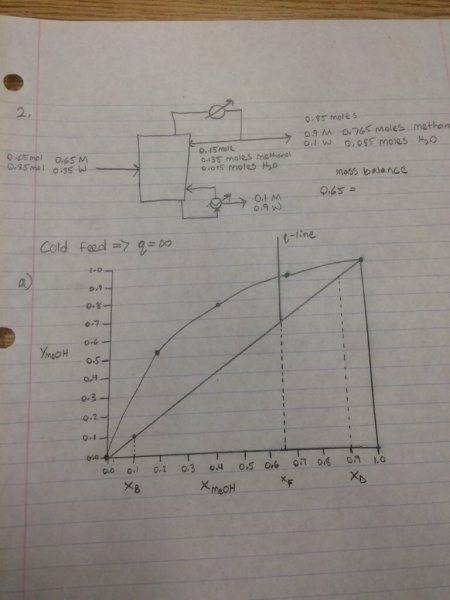 2.
0.85 moles
0.9 M 0.765 moles methanol
0.1 W 0.085 moles H₂O
0.65 mol 0.65 M
0.35 mol 0.35 W
0.15 mole
0.135 moles methanol
0.015 moles H₂O
mass balance
0.65 =
0.1 M
0.9 W
Cold feed => q=∞
q-line
a)
1.0
0.9
0.8
0.7
0.6
0.5
0.4
0.3
0.2
0.1
0.0
YMeOH
0.0 0.1 0.2 0.3 0.4 0.5 0.6 0.7 0.8 0.9 1.0
XB XMeOH XF XD